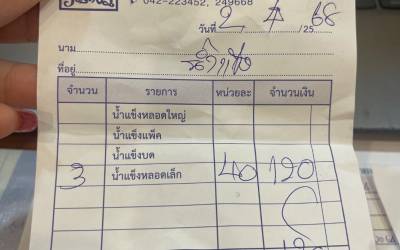 042-223452, 249668
วันที่ 2 / 68 25
นาม น้ำแข็ง
ที่อยู่
จำนวน รายการ หน่วยละ จำนวนเงิน
น้ำแข็งหลอดใหญ่
น้ำแข็งแพ็ค
น้ำแข็งบด
3 น้ำแข็งหลอดเล็ก 40 120